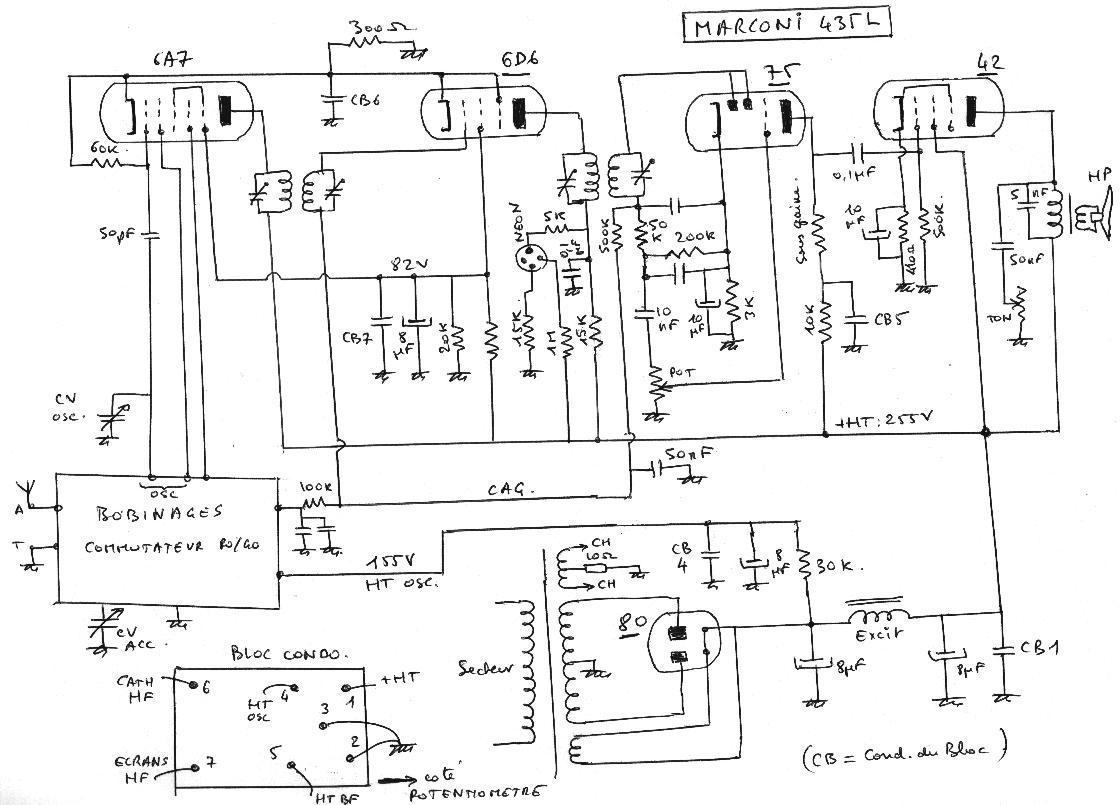 MARCONI 435L
300Ω
6A7
6D6
75
42
CB6
60K.
50pF
0,1µF
HP
5 nF
NEON
5K
500K
50 K
200K
sous gaine.
10 µF
410Ω
500K
50nF
82V
0,1 µF
CB7
8 µF
20K
15K
1M
15K
10 nF
10 µF
3K
10K
CB5
TON
POT
CV OSC.
+HT: 255V
50nF
OSC
100K
CAG.
A
BOBINAGES
T
COMMUTATEUR PO/GO
155V
HT OSC.
CH
10Ω
CH
CB 4
8 µF
30K.
CV ACC.
80
Excit
Secteur
8µF
8µF
CB1
BLOC CONDO.
CATH HF
6
HT OSC
4
+HT
1
3
2
5
ECRANS HF
7
HT BF
coté POTENTIOMETRE
(CB = Cond. du Bloc)